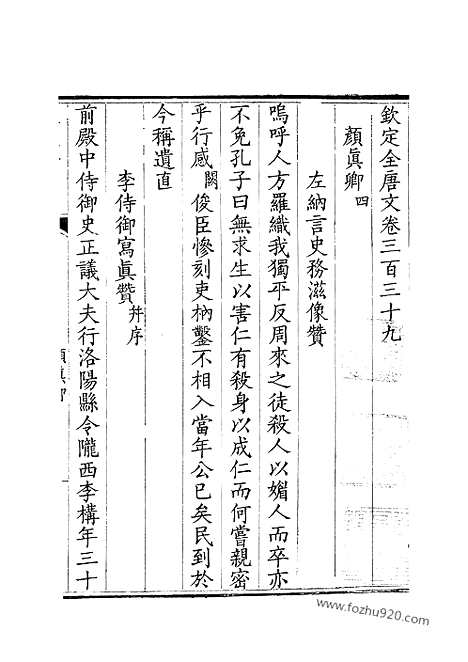 欽定全唐文卷三百三十九
顏眞卿四
左納言史務滋像贊
嗚呼人方羅織我獨平反周來之徒殺人以媚人而卒亦
不免孔子曰無求生以害仁有殺身以成仁而何嘗親密
乎行感闕俊臣慘刻吏枘鑿不相入當年公已矣民到於
今稱遺直
李侍御寫眞贊幷序
前殿中侍御史正議大夫行洛陽縣令隴西李構年三十
www.fozhu920.com